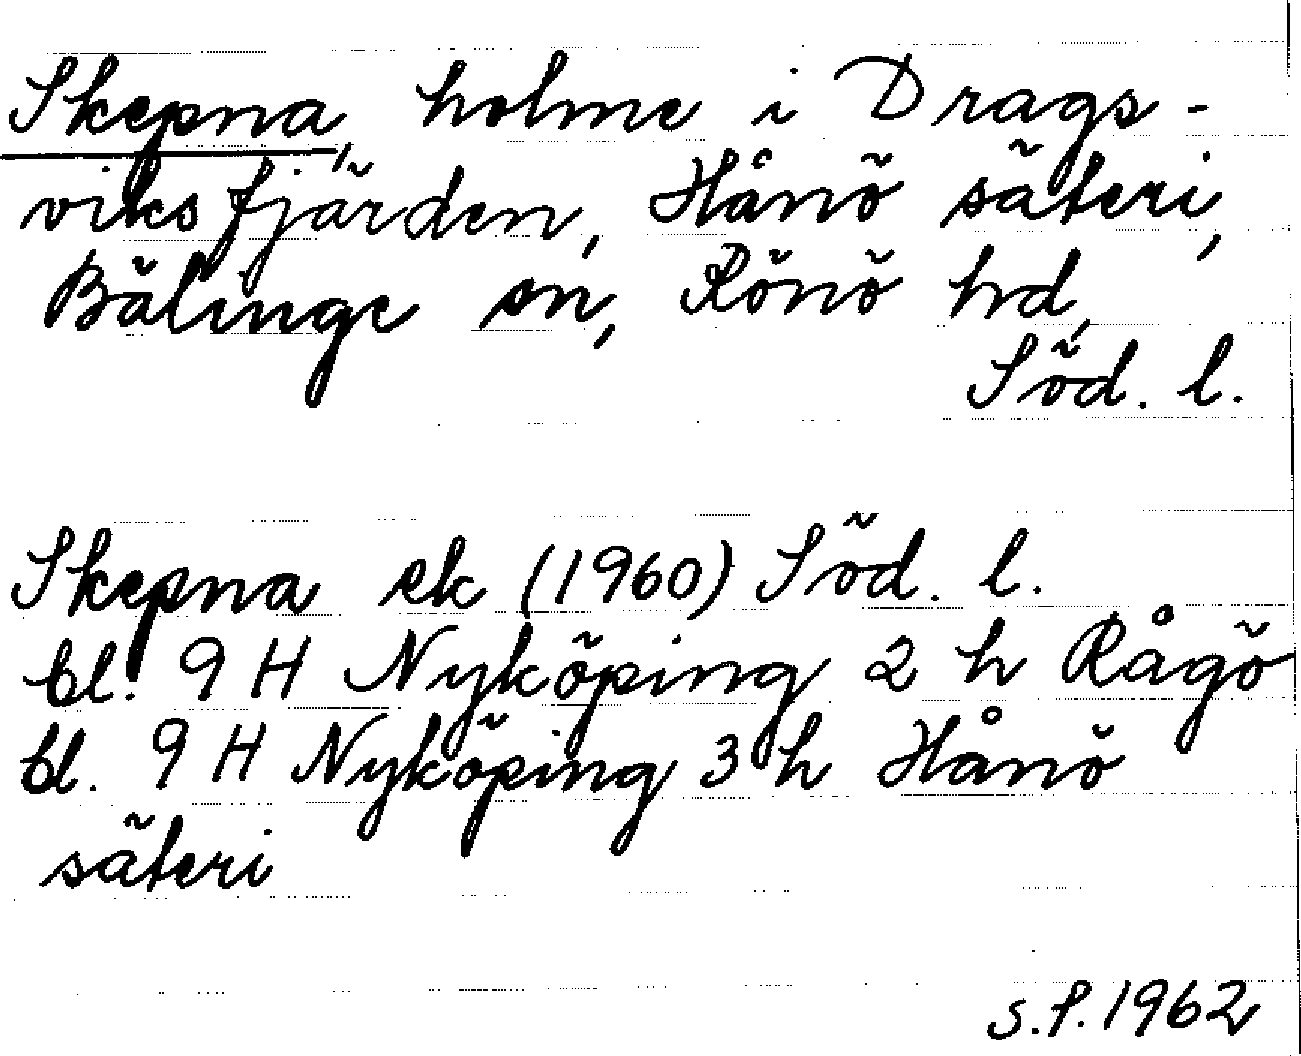 Skepna, holme i Drags-
viksfjärden, Hånö säteri,
Bälinge sn, Rönö hd,
Söd. l.
Skepna ek (1960) Söd. l.
bl. 9 H Nyköping 2 h Rågö
bl. 9 H Nyköping 3 h Hånö
säteri
S.P. 1962